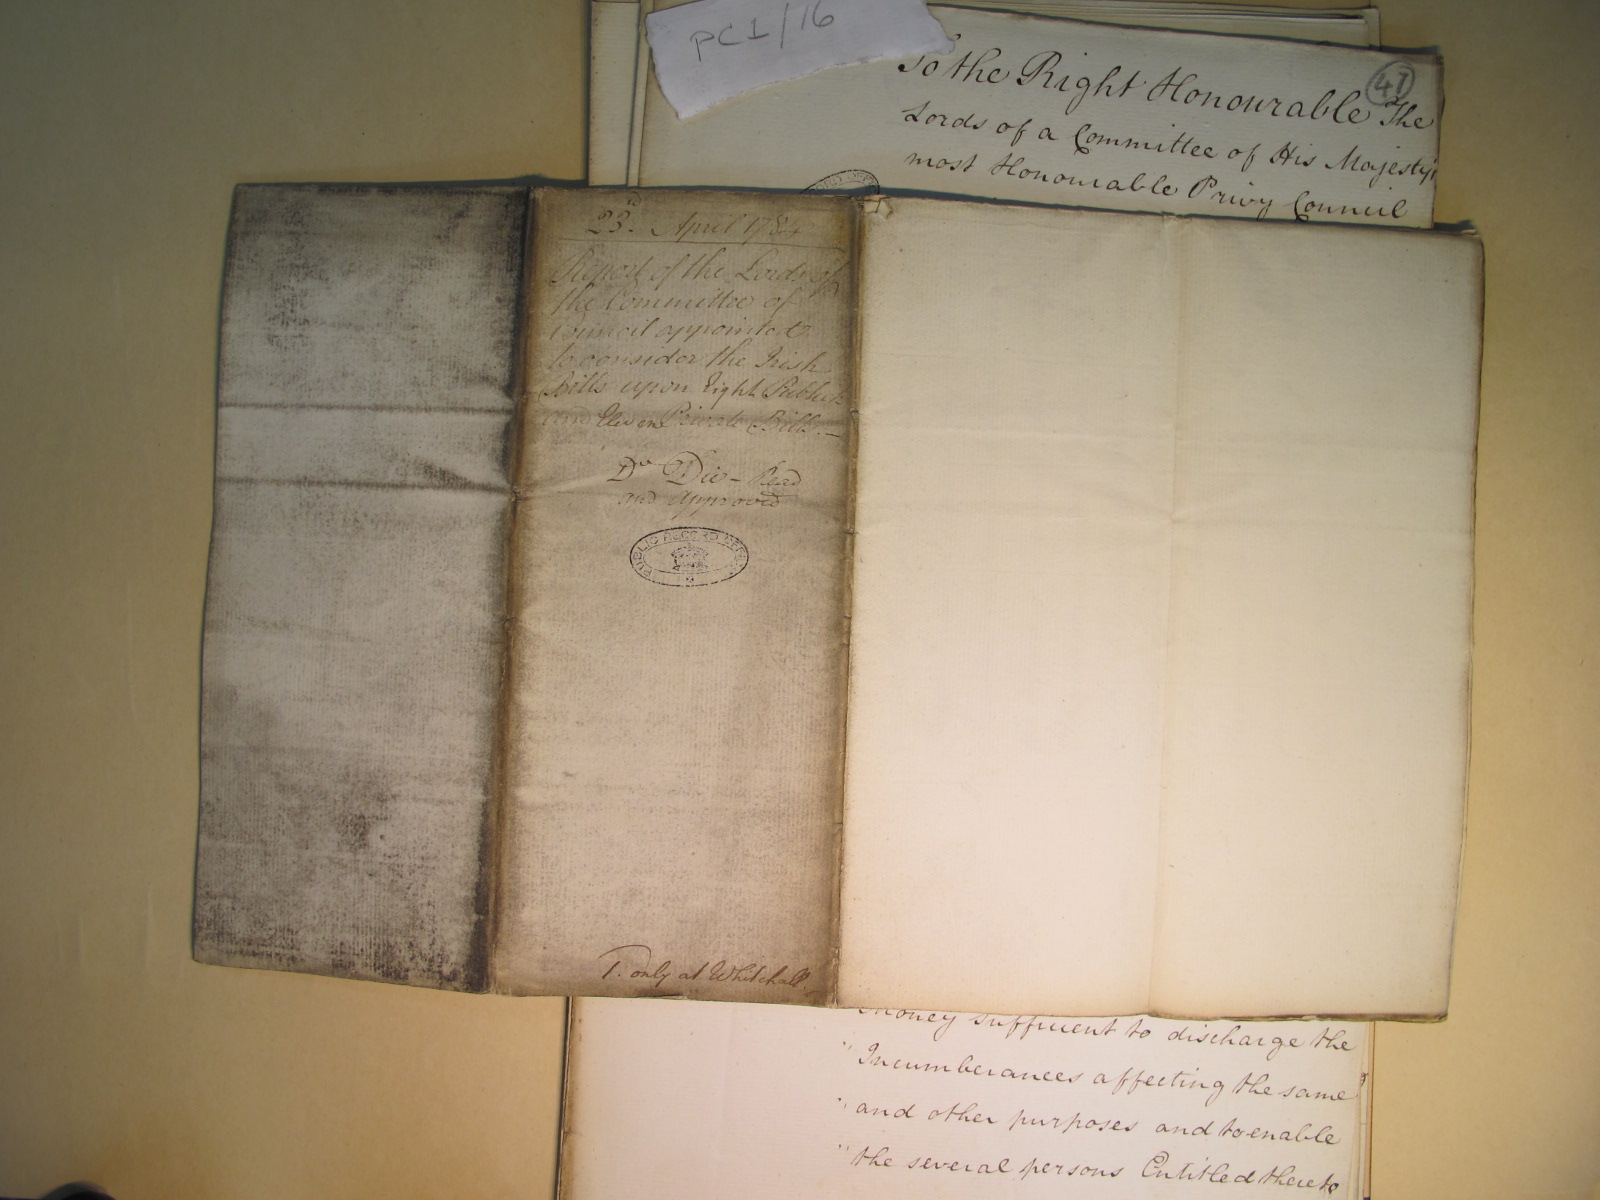 PC1/16
41
To the Right Honourable The
Lords of a Committee of His Majesty's
most Honourable Privy Council
23d. April 1784
Report of the Lords of
the Committee of
Council appointed
to consider the Irish
Bills upon Eight Publick
and Eleven Private Bills.—
Do Die - Read
and approved
PUBLIC RECORD OFFICE
T. only at Whitehall.
Money sufficient to discharge the
" Incumberances affecting the same
" and other purposes and to enable
" the several persons Entitled thereto